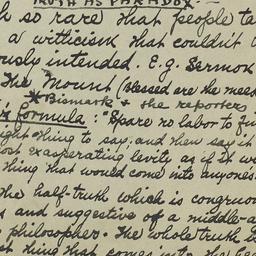 TRUTH AS PARADOX.
h so rare that people ta
a witticism that couldn't
ously intended. E.g. Sermon
The Mount (Blessed are the mee
*Bismark & the reporters
's formula: "Spare no labor to fi
ight thing to say; and then say it
ost exasperating levity, as if it we
thing that would come into anyones
The half-truth which is congruou
s and suggestive of a middle-a
philosopher. The whole truth is
st thing that comes into the hea